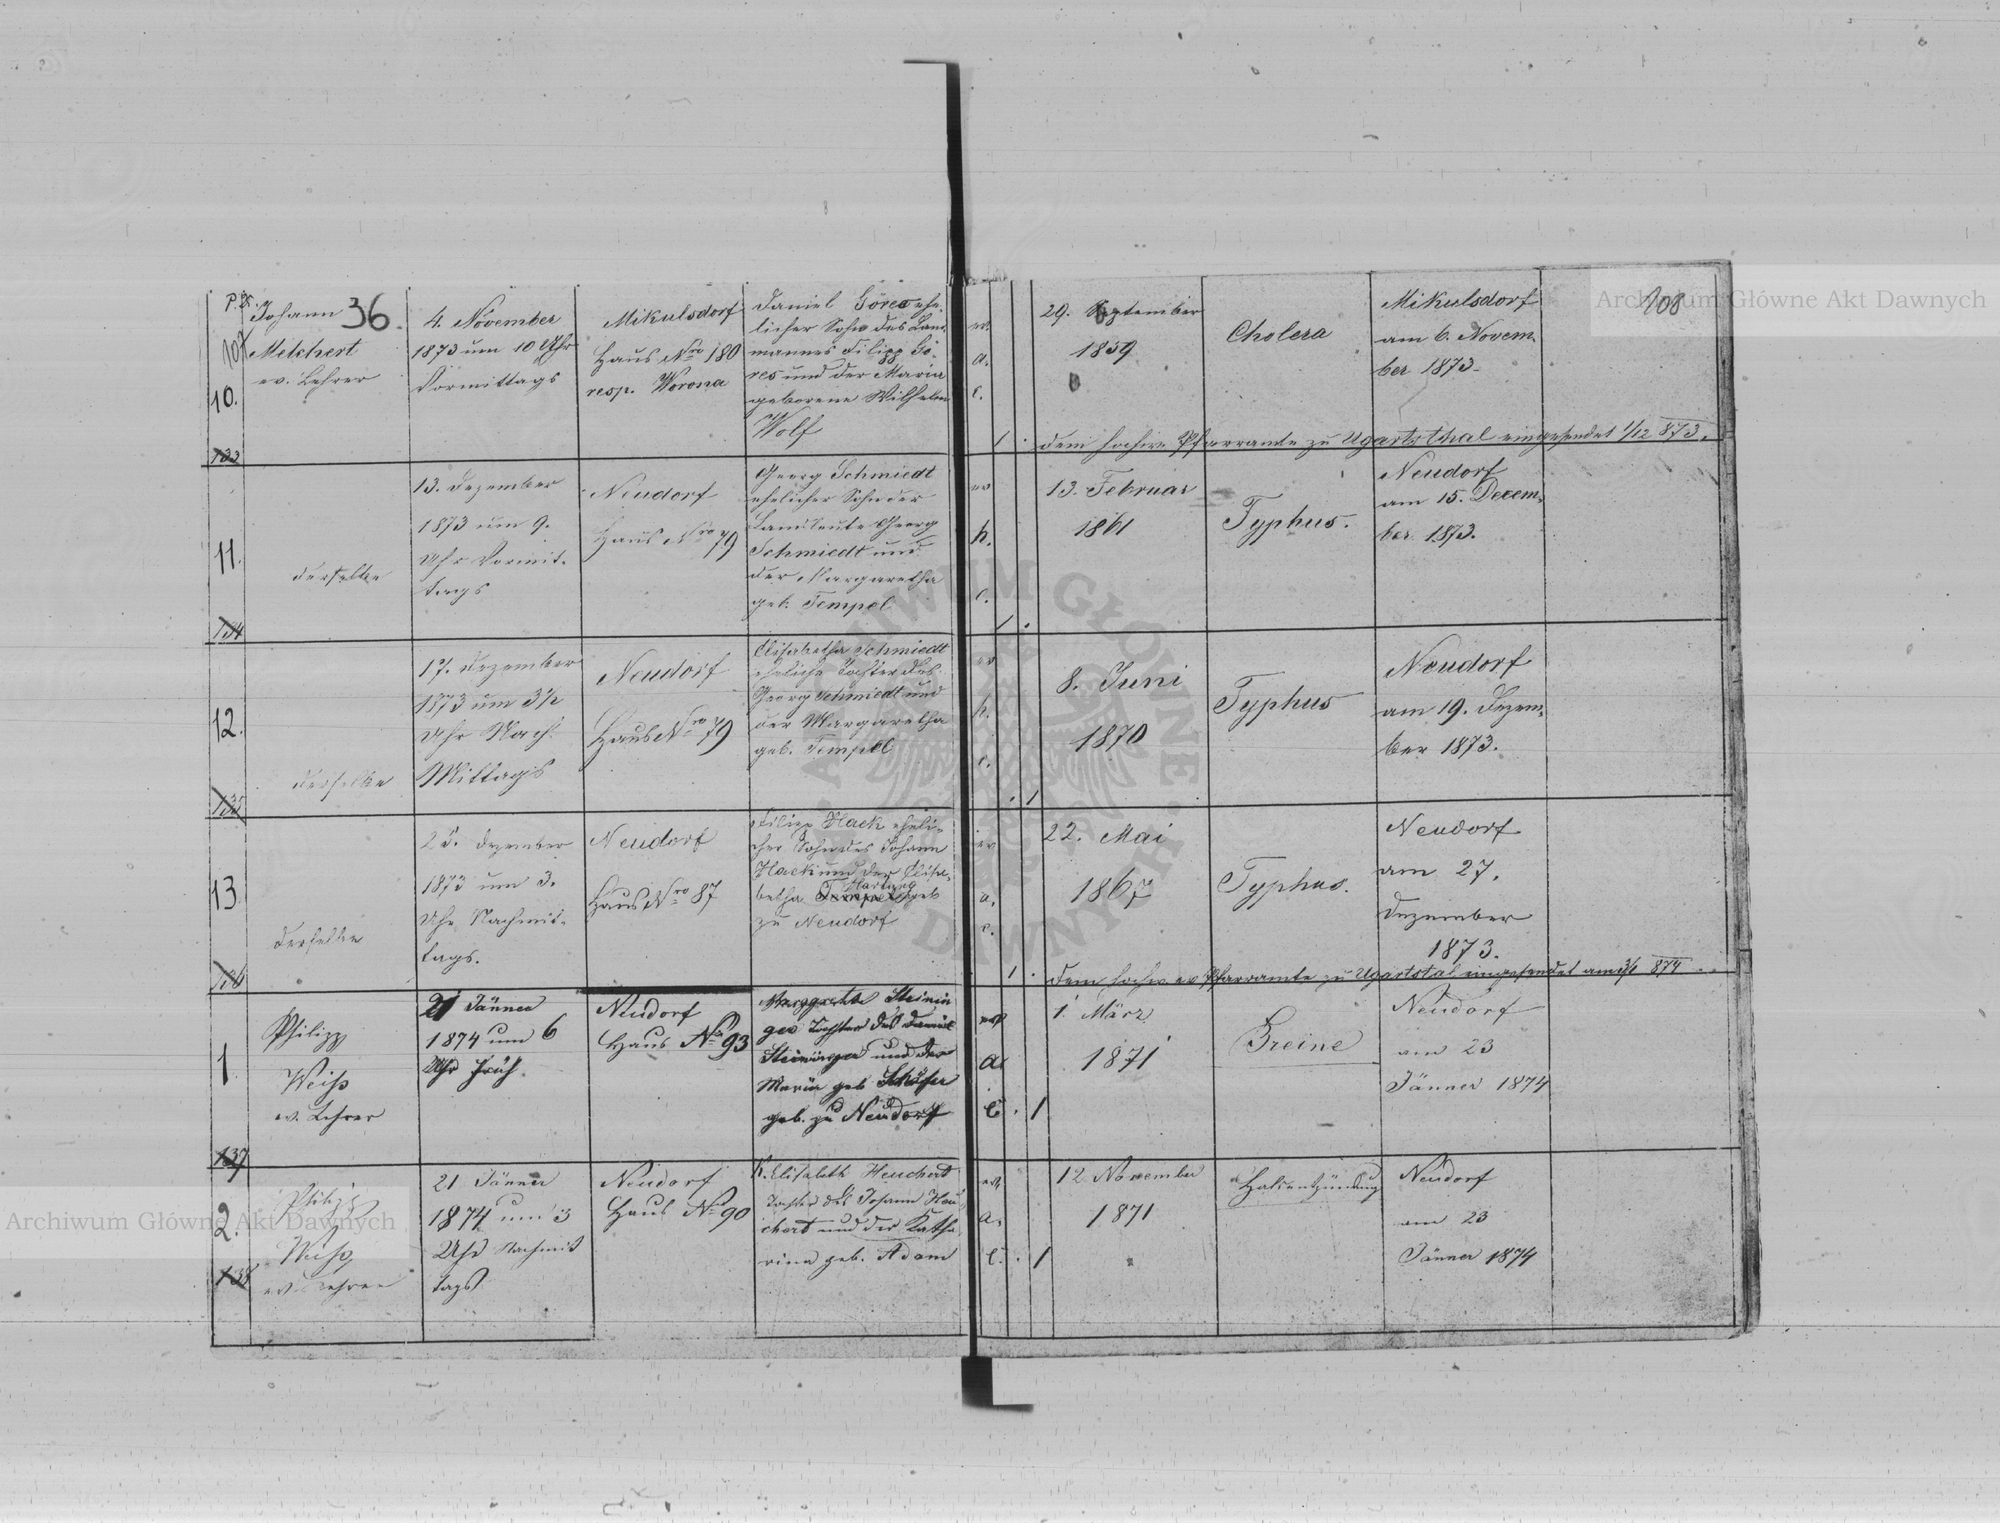 Archiwum Główne Akt Dawnych
108
36.
107
10.
Johann
Melchert
ev. Lehrer
4. November
1873 um 10 Uhr
Vormittags
Mikulsdorf
Haus Nro 180
resp. Worona
Daniel Göres ehe-
licher Sohn des Land-
mannes Filipp Gö-
res und der Maria
geborene Wilhelm
Wolf
ev.
a.
c.
1
29. September
1859
Cholera
Mikulsdorf
am 6. Novem-
ber 1873.
dem hochw. Pfarramte zu Ugartsthal eingesendet 1/12 873.
133
11.
derselbe
13. Dezember
1873 um 9.
Uhr Vormit-
tags
Neudorf
Haus Nro 79
Georg Schmiedt
ehelicher Sohn der
Landleute Georg
Schmiedt und
der Margaretha
geb. Tempel
ev
h.
c.
1
13. Februar
1861
Typhus.
Neudorf
am 15. Decem-
ber 1873.
134
12.
derselbe
17. Dezember
1873 um 3½
Uhr Nach-
Mittags
Neudorf
Haus Nro 79
Elisabetha Schmiedt
eheliche Tochter des
Georg Schmiedt und
der Margaretha
geb. Tempel
ev
h.
c.
1
8. Juni
1870
Typhus
Neudorf
am 19. Dezem-
ber 1873.
135
13
derselbe
25. Dezember
1873 um 3.
Uhr Nachmit-
tags.
Neudorf
Haus Nro 87
Filipp Hack eheli-
cher Sohn des Johann
Hack und der Elisa-
Hartung
betha Tempel geb
zu Neudorf
ev
a.
c.
1
22. Mai
1867
Typhus.
Neudorf
am 27.
Dezember
1873.
dem hochw ev Pfarramte zu Ugartstal eingesendet am 3/1 874
136
1
Philipp
Weiß
ev. Lehrer
21 Jänner
1874 um 6
Uhr Früh.
Neudorf
Haus No 93
Margareta Steinin
ger Tochter des Daniel
Steininger und der
Maria geb Schäfer
geb. zu Neudorf
a.
c.
1
1 März
1871
Breine
Neudorf
am 23
Jänner 1874
137
2.
Philipp
Weiß
ev. Lehrer
21 Jänner
1874 um 3
Uhr Nachmit
tags
Neudorf
Haus No 90
Elisabeth Heuchert
Tochter des Johann Heu
chert und der Katha
rina geb. Adam
ev.
a.
c.
1
12 November
1871
Halsentzündung
Neudorf
am 23
Jänner 1874
138
Archiwum Główne Akt Dawnych
ARCHIWUM GŁÓWNE AKT DAWNYCH